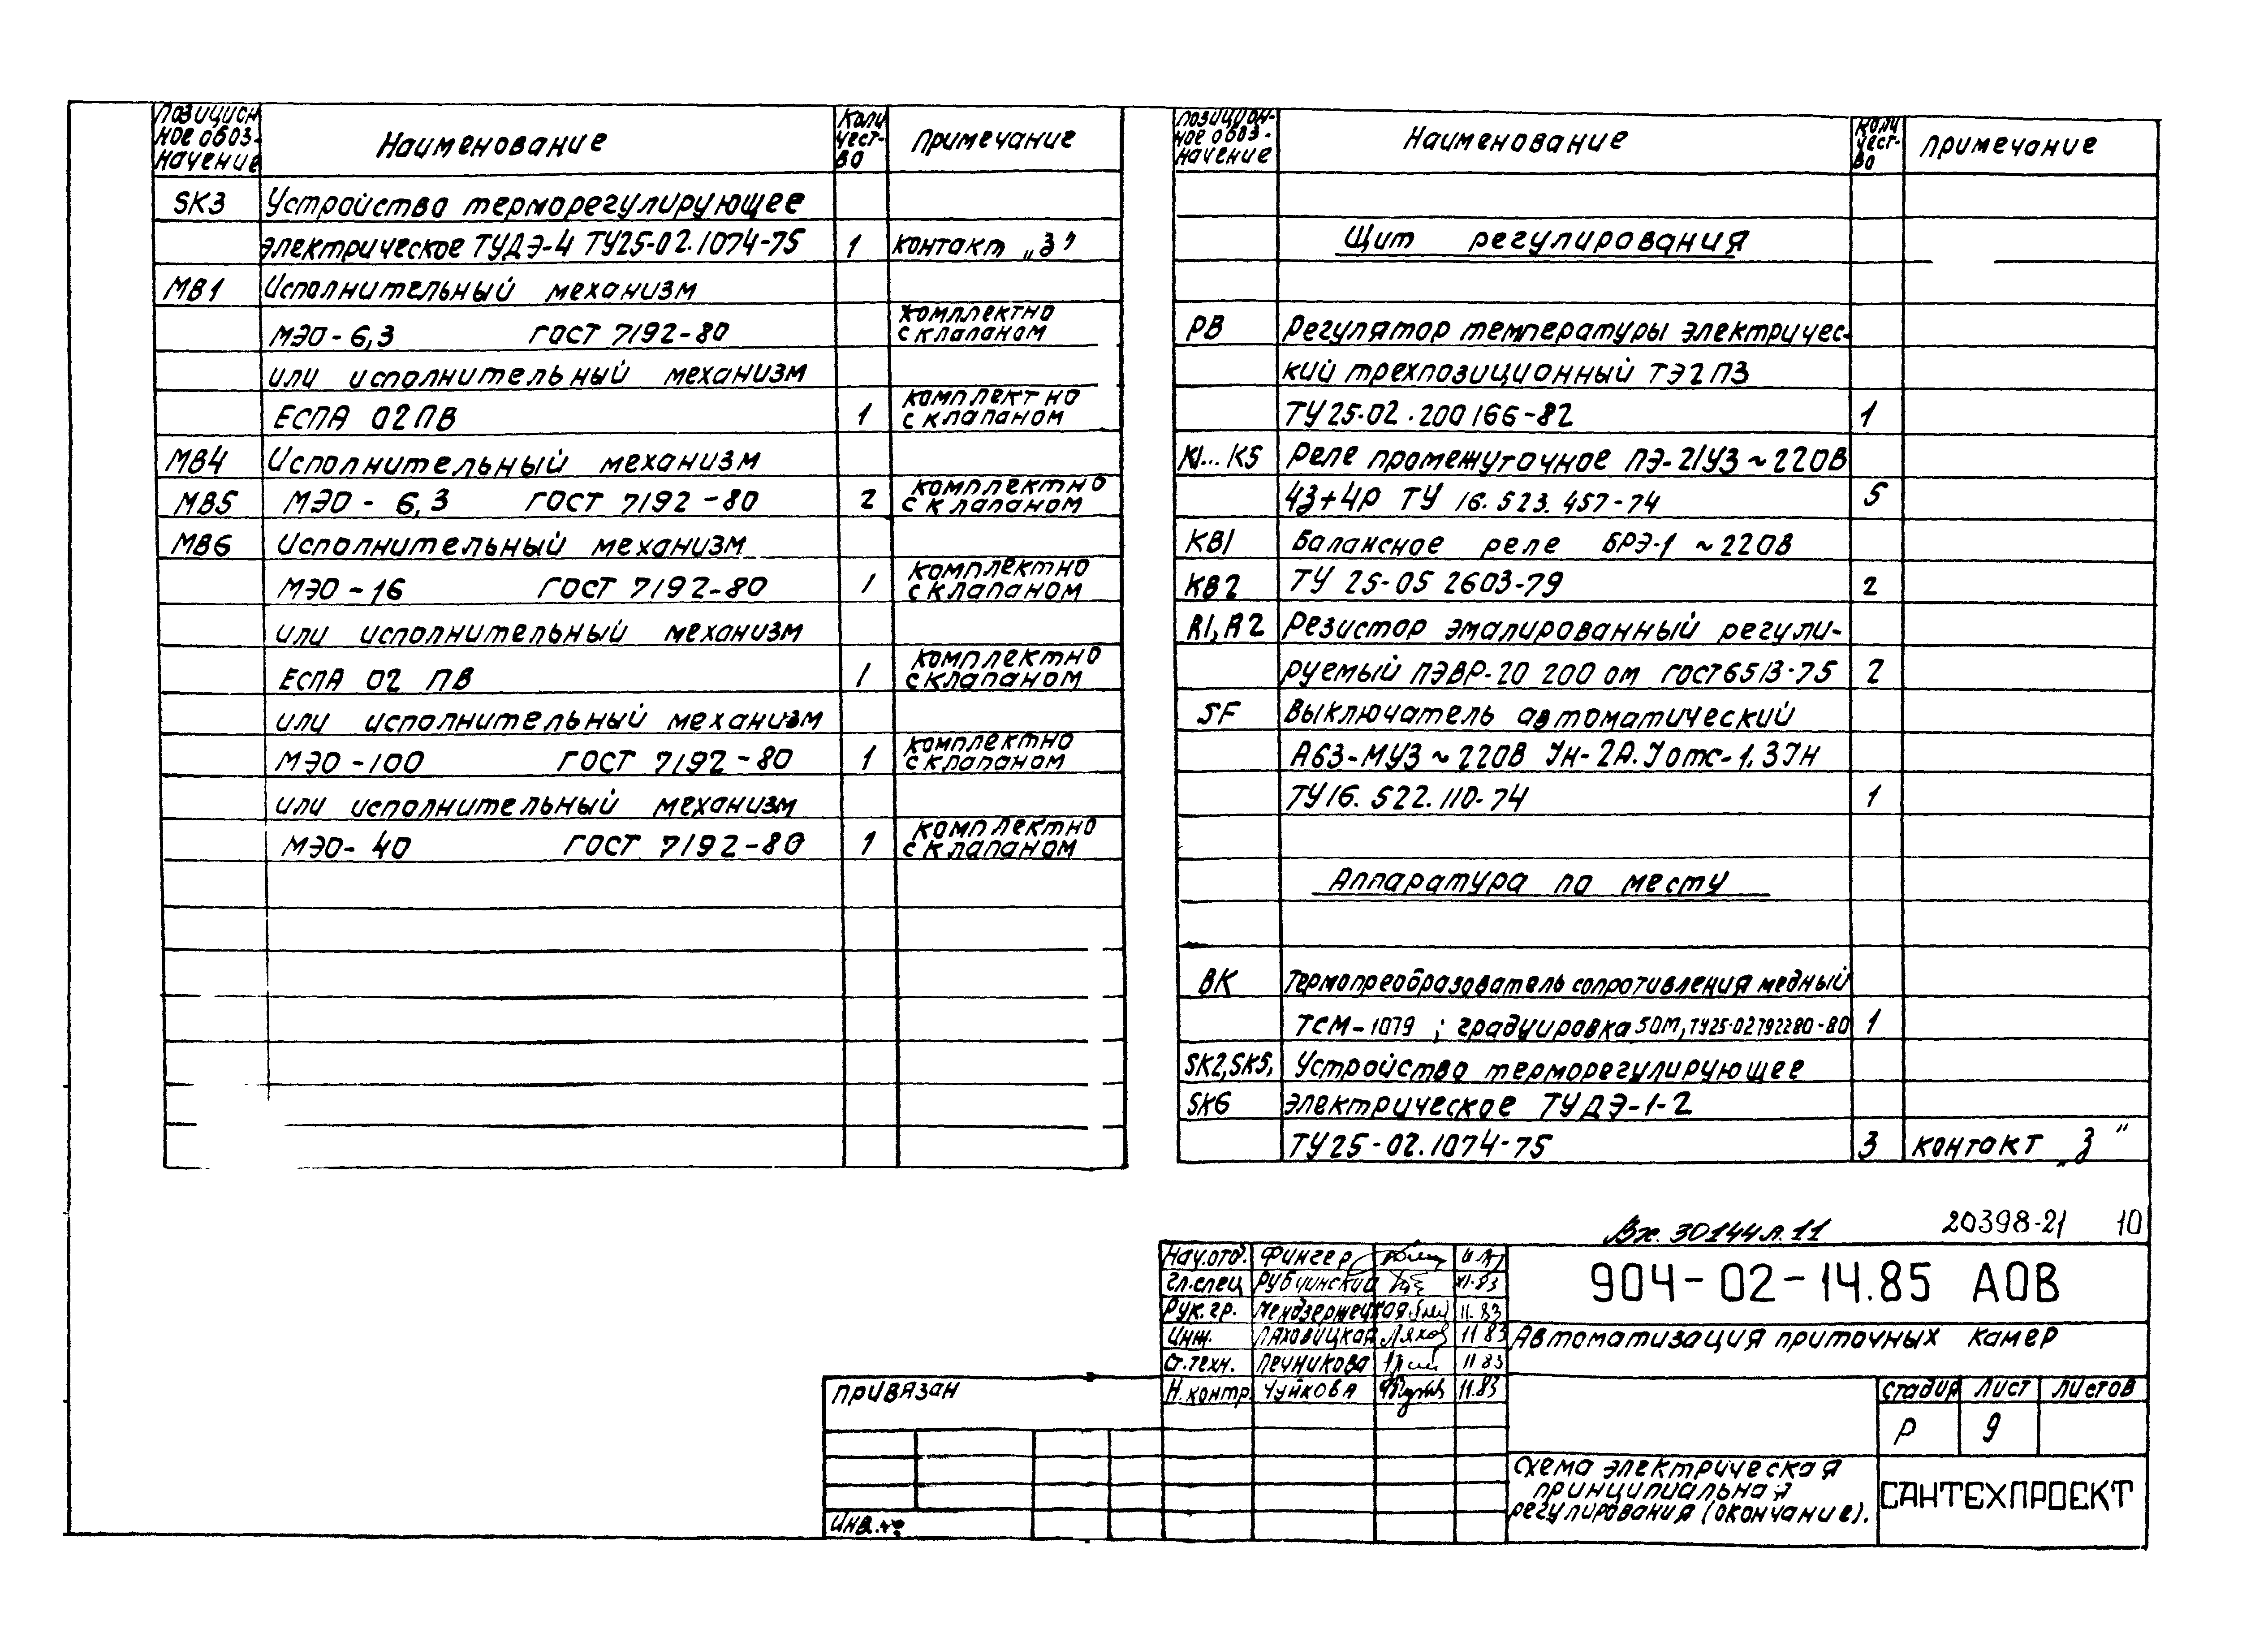 Позицион
ное обоз-
начение
Наименование
Коли
чест-
во
Примечание
SK3 Устройство терморегулирующее
электрическое ТУДЭ-4 ТУ25-02.1074-75 1 контакт „З”
МВ1 Исполнительный механизм
МЭО-6,3 ГОСТ 7192-80 комплектно
с клапаном
или исполнительный механизм
ЕСПА 02ПВ 1 комплектно
с клапаном
МВ4 Исполнительный механизм
МВ5 МЭО - 6,3 ГОСТ 7192-80 2 комплектно
с клапаном
МВ6 Исполнительный механизм
МЭО-16 ГОСТ 7192-80 1 комплектно
с клапаном
или исполнительный механизм
ЕСПА 02 ПВ 1 комплектно
с клапаном
или исполнительный механизм
МЭО-100 ГОСТ 7192-80 1 комплектно
с клапаном
или исполнительный механизм
МЭО-40 ГОСТ 7192-80 1 комплектно
с клапаном
Позицион-
ное обоз-
начение
Наименование
Коли
чест-
во
Примечание
Щит регулирования
РВ Регулятор температуры электричес-
кий трехпозиционный ТЭ2П3
ТУ25-02.200166-82 1
К1...К5 Реле промежуточное ПЭ-21У3 ~220В
4з+4р ТУ 16.523.457-74 5
КВ1 Балансное реле БРЭ-1 ~220В
КВ2 ТУ 25-05 2603-79 2
R1, R2 Резистор эмалированный регули-
руемый ПЭВР-20 200 ом ГОСТ 6513-75 2
SF Выключатель автоматический
А63-МУ3 ~220В Jн-2А. Jотс-1,3Jн
ТУ16.522.110-74 1
Аппаратура по месту
ВК Термопреобразователь сопротивления медный
ТСМ-1079 ; градуировка 50М, ТУ25-02792280-80 1
SK2, SK5, Устройство терморегулирующее
SK6 электрическое ТУДЭ-1-2
ТУ25-02.1074-75 3 контакт „З”
Вх. 30144л.11 20398-21 10
Нач.отд. Фингер
Гл.спец Рубчинский XI.83
Рук.гр. Мендзержецкая 11.83
Инж. Ляховицкая Ляхов 11 83
Ст.техн. Печникова 11 83
Н.контр. Чуйкова 11.83
904-02-14.85 АОВ
Автоматизация приточных камер
Стадия Лист Листов
Р 9
Схема электрическая
принципиальная
регулирования (окончание).
САНТЕХПРОЕКТ
Привязан
Инв.№